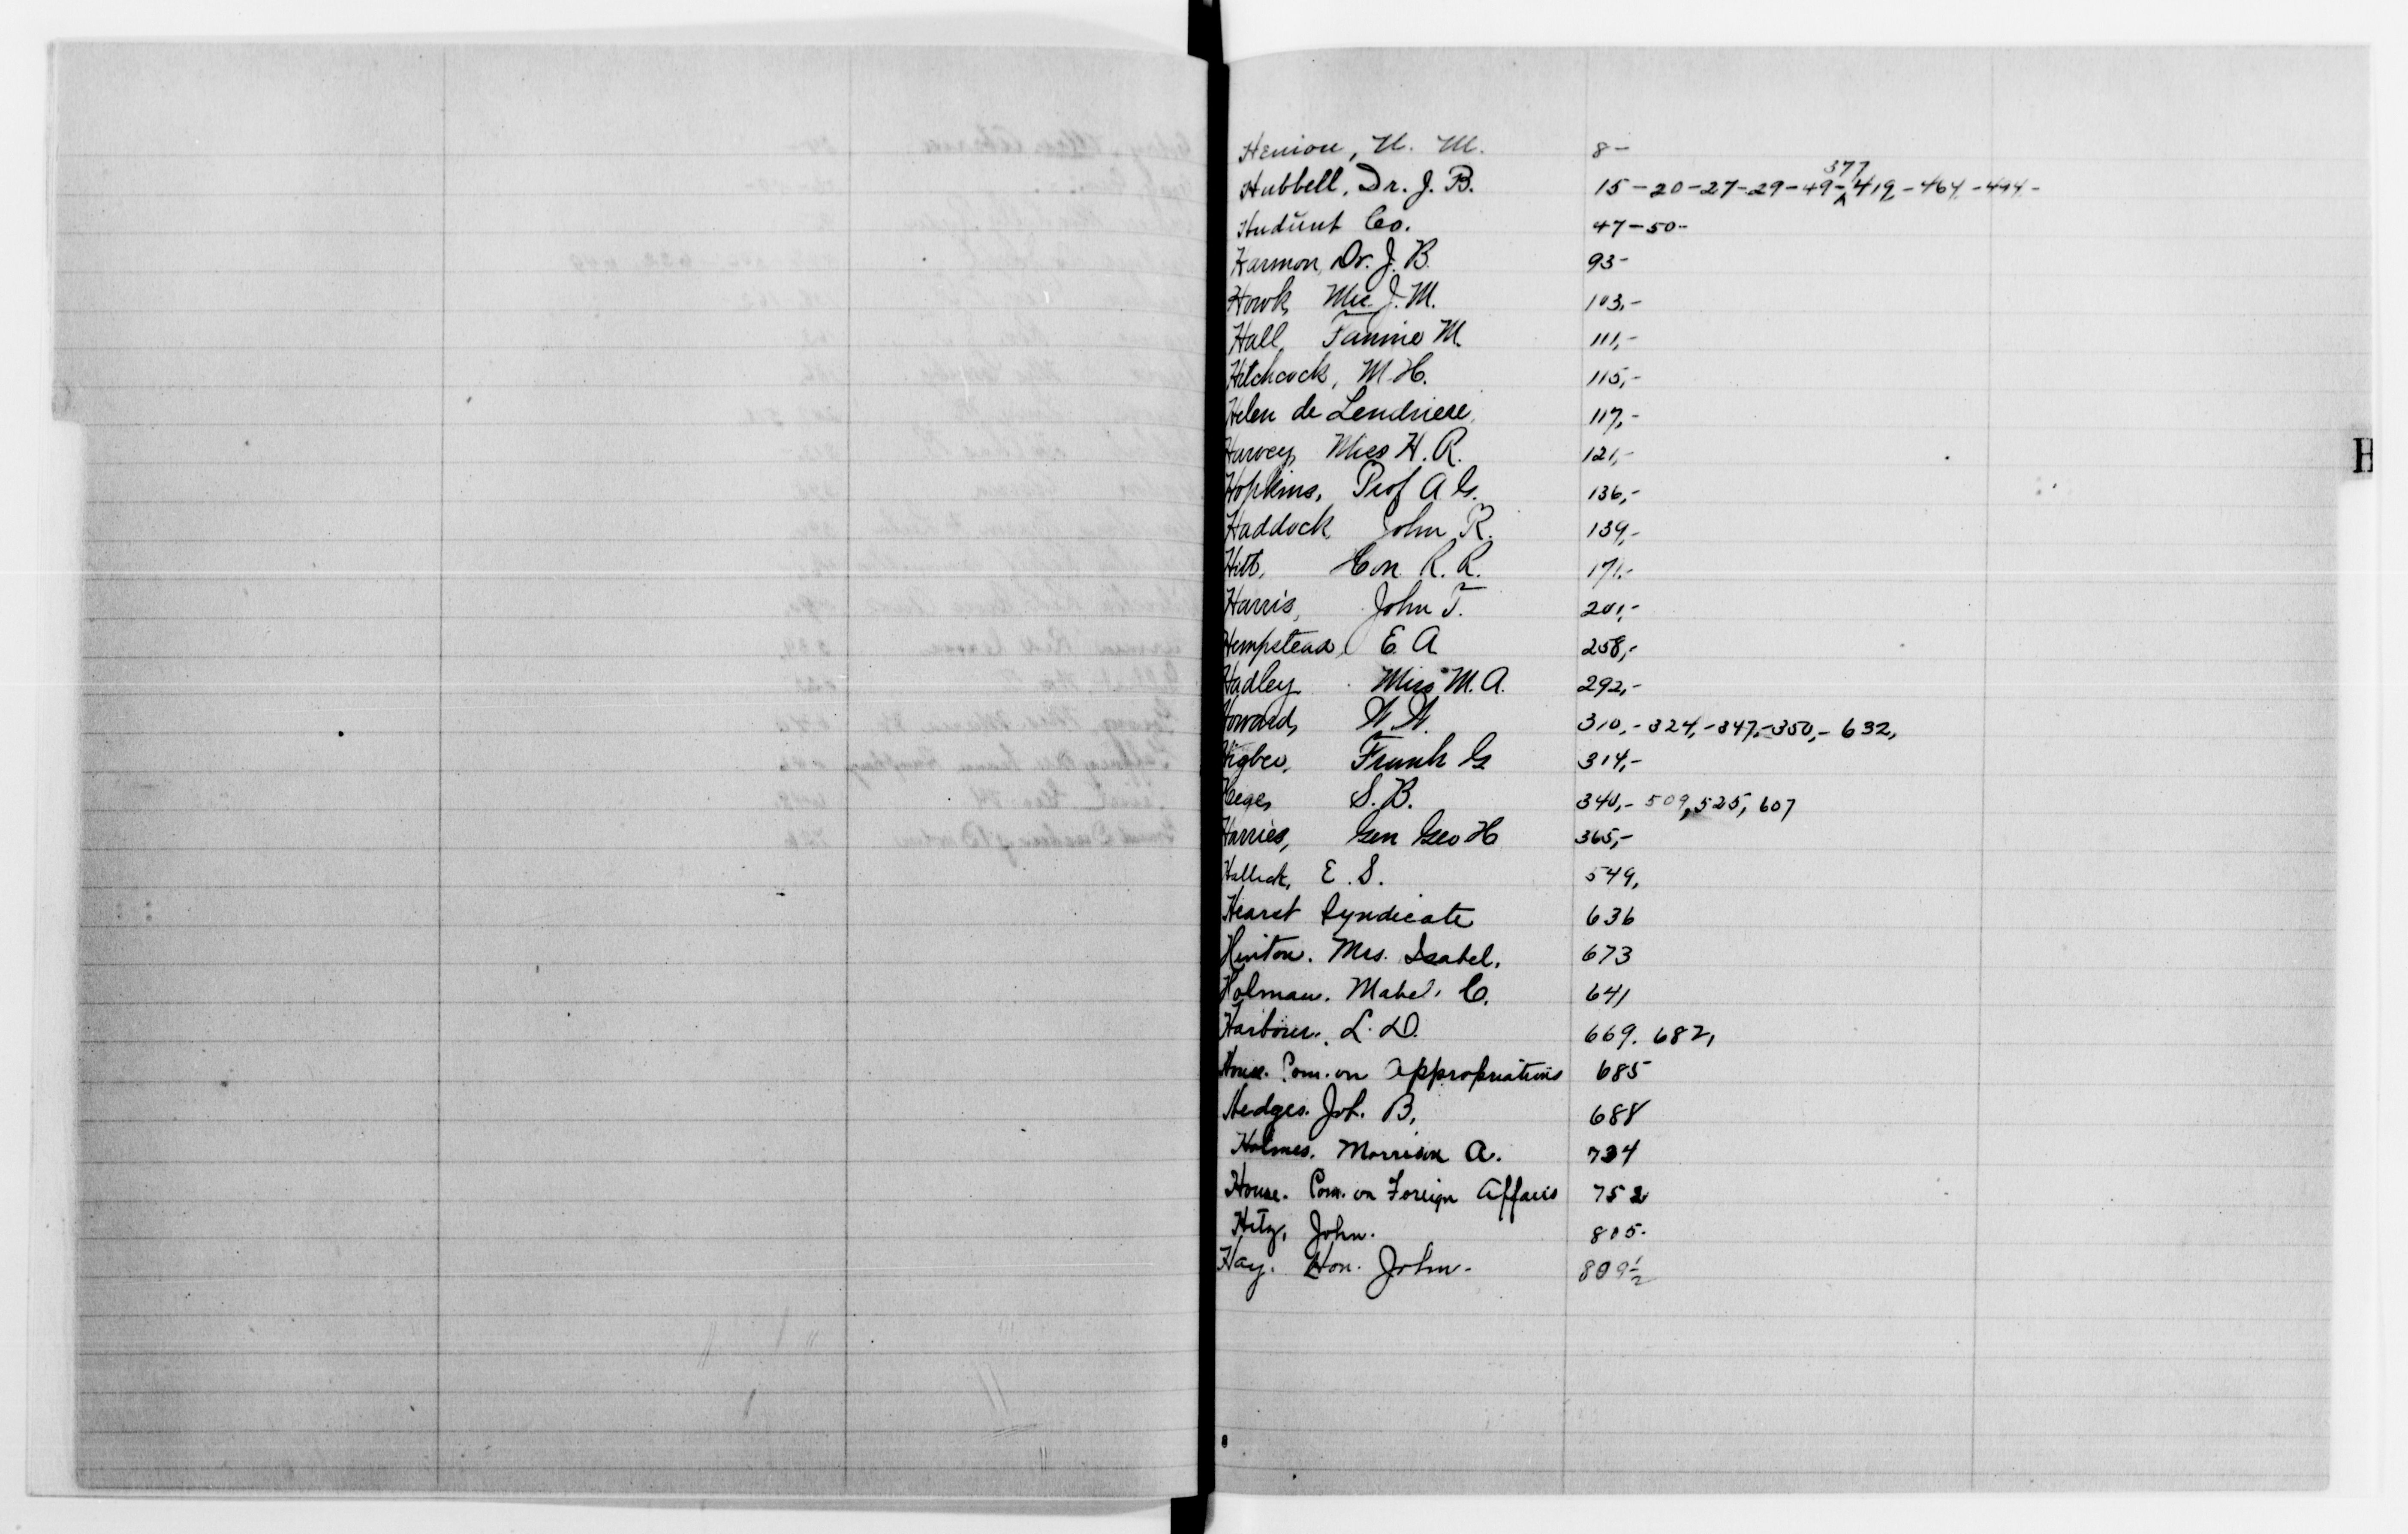 Henion, N. M. 8-
Hubbell, Dr. J. B. 15-20-27-29-49-377^419-464-494-
Hudnut Co. 47-50-
Harmon, Dr. J. B. 93-
Howk, J. M. 103,-
Hall, Fannie M. 111,-
Hitchcock, M. H. 115,-
Helen de Lendriese, 117,-
Harvey, Miss H. R. 121,-
Hopkins, Prof A G. 136,-
Haddock, John R. 139,-
Hitt, Hon. R. R. 171,-
Harris, John T. 201,-
Hempstead, E. A 258,-
Hadley Miss M. A. 292,-
Howard, 310,-324,-347,-350,-632,
Higbee, Frank G 314,-
Hege, S. B. 340,-509,525,607
Harries, Gen Geo H 365,-
Halleck, E. S. 549,
Hearst Syndicate 636
Hinton. Mrs. Isabel. 673
Holman. Mabel. C. 641
Harbour. L. D. 669. 682,
House. Com. on Appropriations 685
Hedges. Job. B. 688
Holmes. Morrison A. 734
House. Com. on Foreign Affairs 752
Hitz, John. 805.
Hay. Hon. John. 809½
H